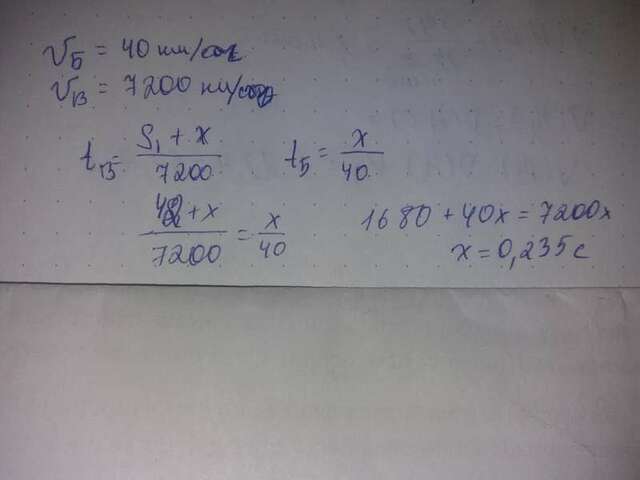 V_Б = 40 км/сек
V_В = 7200 км/сек
t_В = (S₁ + x)/7200 t_Б = x/40
(42 + x)/7200 = x/40 1680 + 40x = 7200x
x = 0,235 с